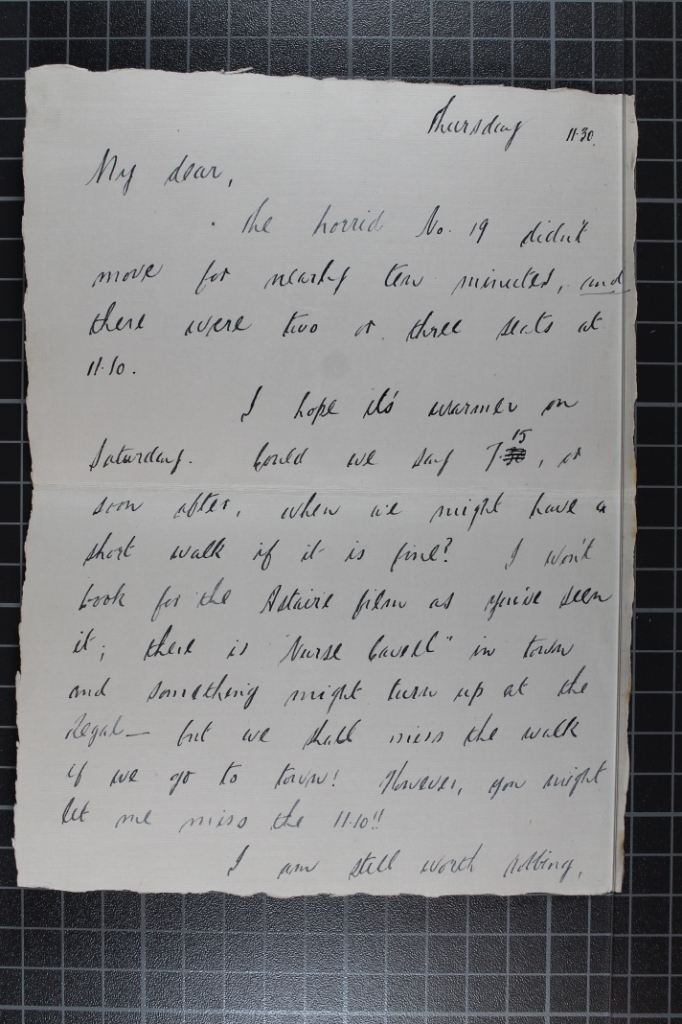 Thursday 11.30.
My dear,
The horrid No. 19 didn't
move for nearly ten minutes, and
there were two or three seats at
11.10.
I hope it's warmer on
Saturday. Could we say 7.15, or
soon after, when we might have a
short walk if it is fine? I won't
book for the Astaire film as you've seen
it; there is "Nurse Cavell" in town
and something might turn up at the
Regal — but we shall miss the walk
if we go to town! However, you might
let me miss the 11.10!!
I am still worth robbing,